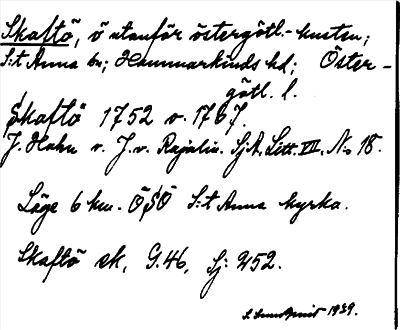 Skaftö, ö utanför östergötl.- kusten;
S:t Anna sn; Hammarkinds hd; Öster-
götl. l.
Skaftö 1752 o. 1767.
J. Hahn o. J. v. Rajalin. Sj.A. Litt. VII, No 18.
Läge 6 km. ÖSÖ S:t Anna kyrka.
Skaftö ek, G.46, Sj: 252.
1939.